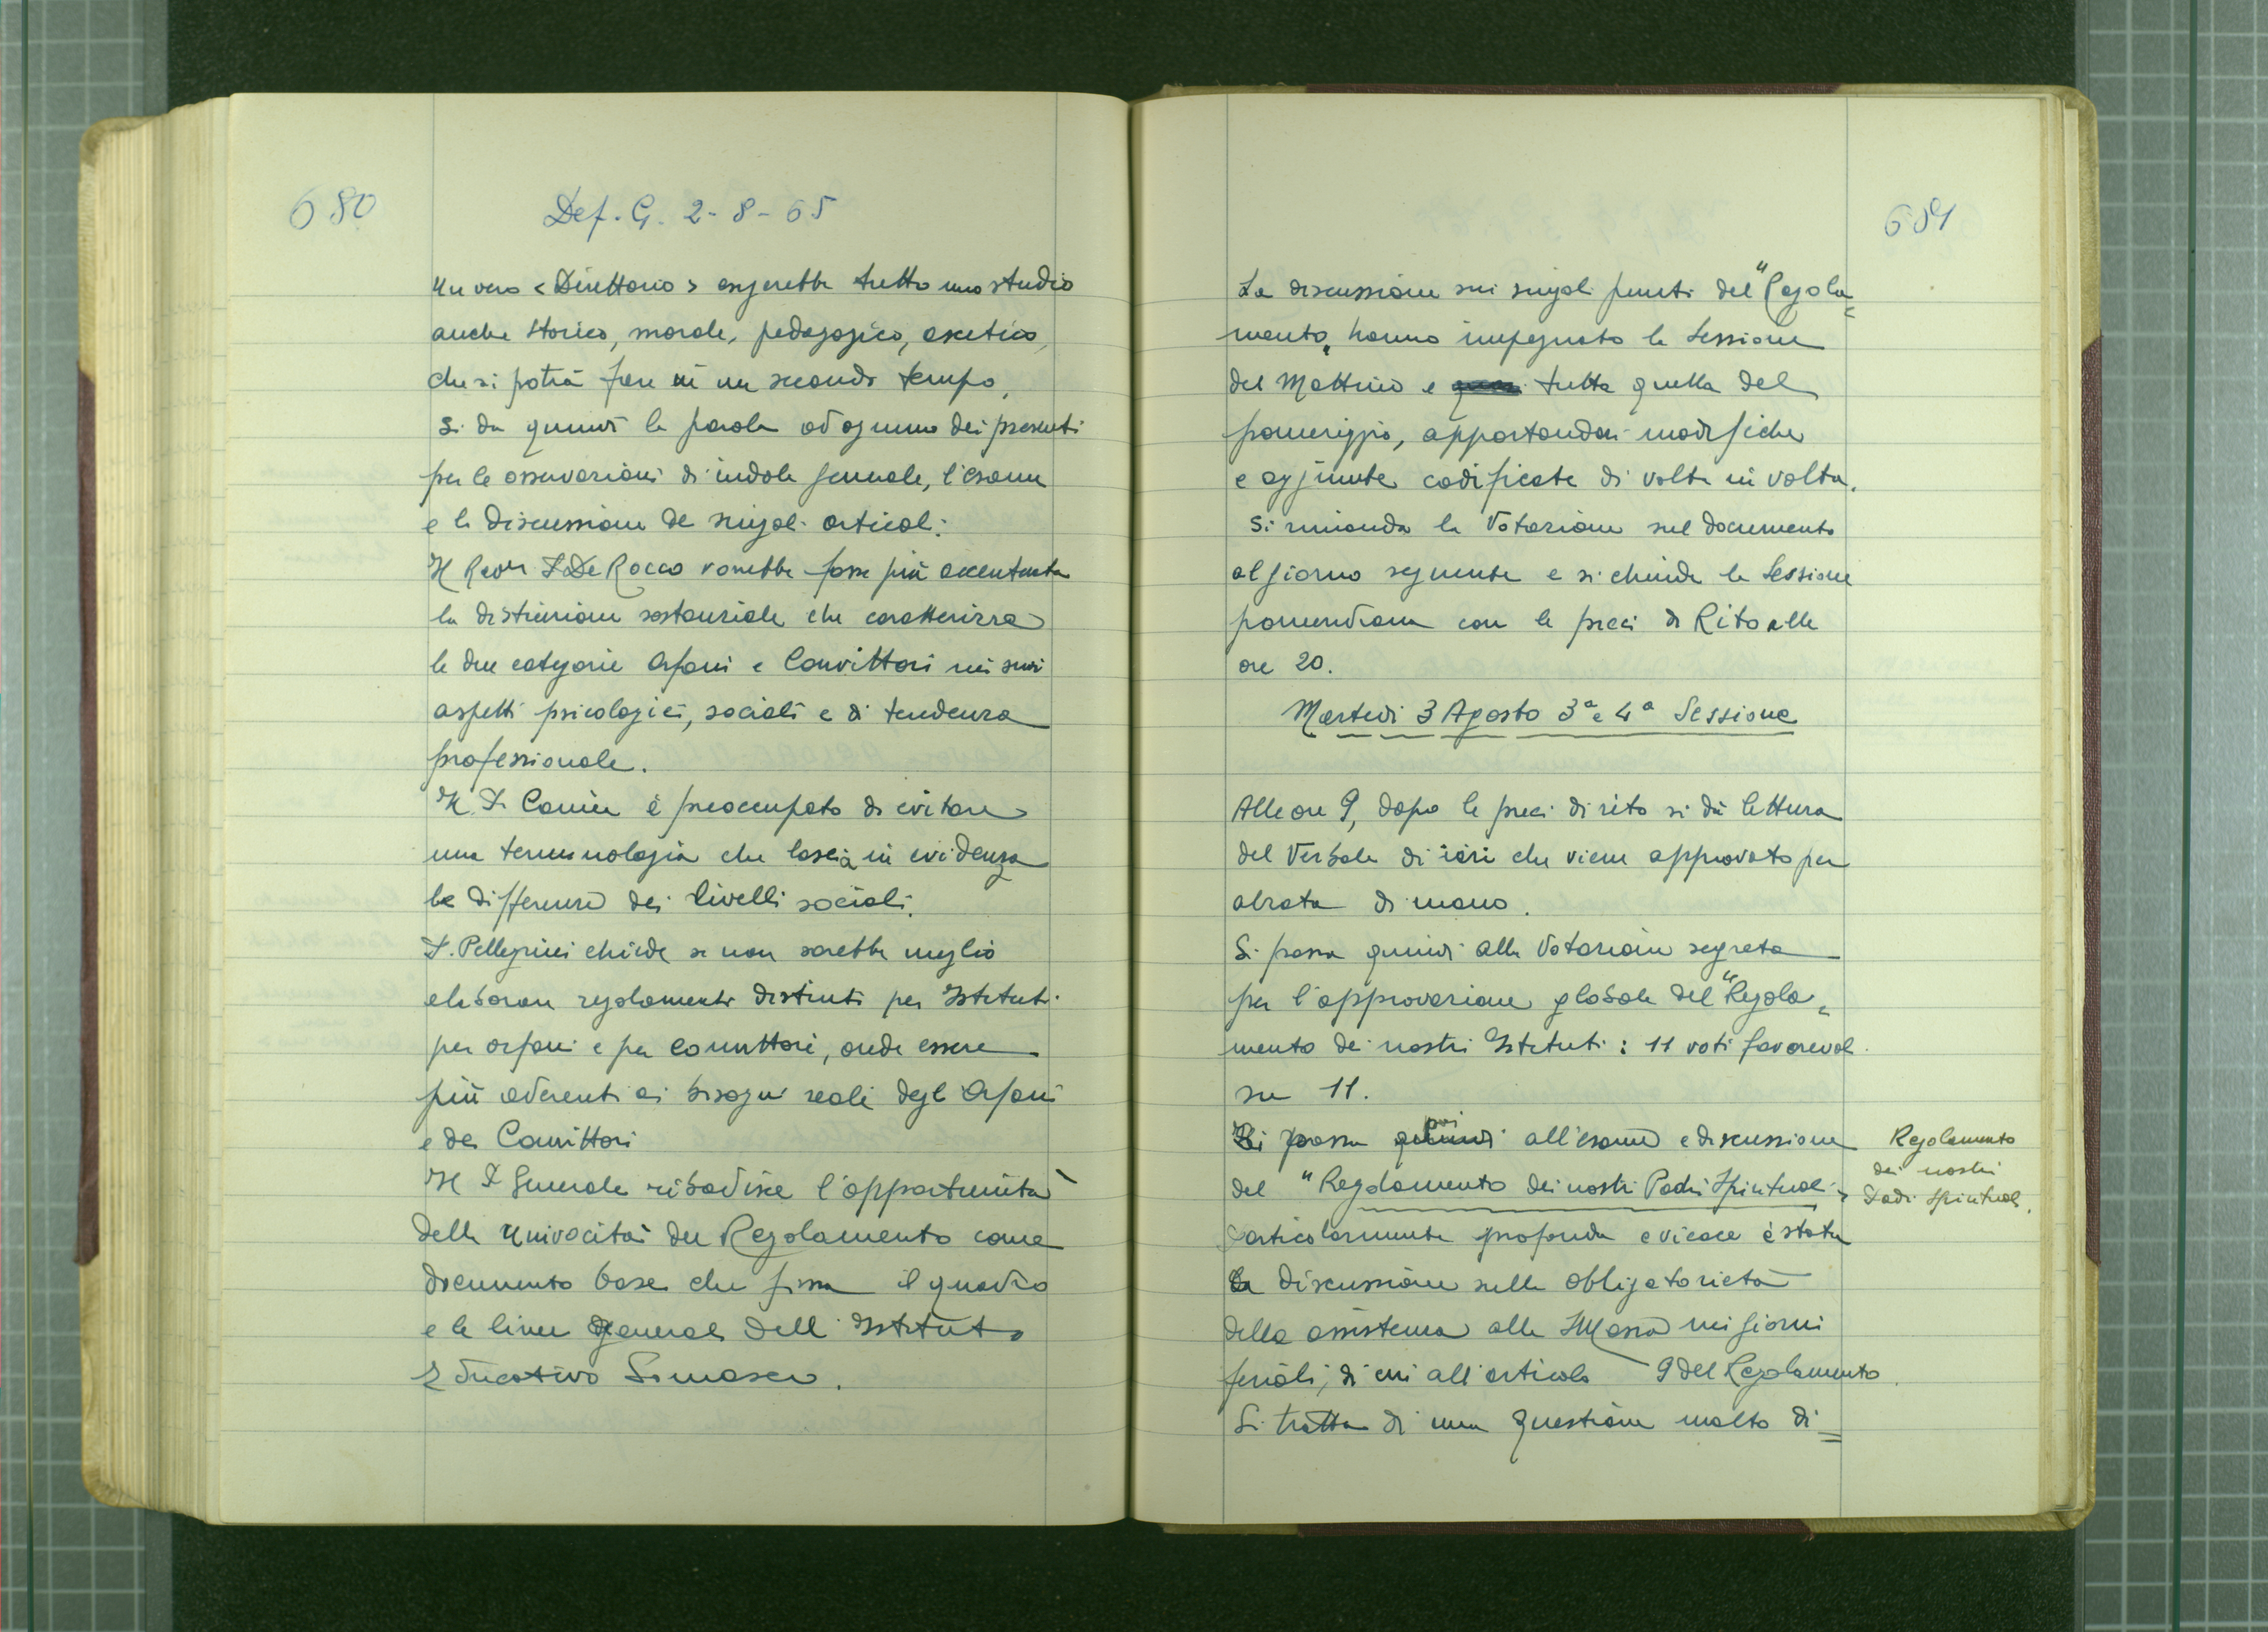 680
Def. G. 2-8-65
Un vero <Direttorio> esigerebbe tutto uno studio
anche storico, morale, pedagogico, ascetico,
che si potrà fare in un secondo tempo.
Si da quindi la parola ad ognuno dei presenti
per le osservazioni di indole generale, l'esame
e la discussione dei singoli articoli.
Il Rev.mo P. De Rocco vorrebbe fosse più accentuata
la distinzione sostanziale che caratterizza
le due categorie Orfani e Convittori nei suoi
aspetti psicologici, sociali e di tendenza
professionale.
Il P. è preoccupato di evitare
una terminologia che lascia in evidenza
le differenze dei livelli sociali.
P. Pellegrini chiede se non sarebbe meglio
elaborare regolamenti distinti per Istituti
per orfani e per convittori, onde essere
più aderenti ai bisogni reali degli Orfani
e dei Convittori
Il P. Generale ribadisce l'opportunità
della univocità del Regolamento come
documento base che fissa il quadro
e le linee generali dell'Istituto
Educativo Somasco.
681
La discussione sui singoli punti del "Regola=
mento" hanno impegnato la Sessione
del Mattino e tutta quella del
pomeriggio, apportandovi modifiche
e aggiunte codificate di volta in volta.
Si rimanda la Votazione sul documento
al giorno seguente e si chiude la Sessione
pomeridiana con le preci di Rito alle
ore 20.
Martedi 3 Agosto 3ª e 4ª Sessione
Alle ore 9, dopo le preci di rito si dà lettura
del Verbale di ieri che viene approvato per
alzata di mano.
Si passa quindi alla Votazione segreta
per l'approvazione globale del "Regola=
mento dei nostri Istituti: 11 voti favorevoli
su 11.
Si passa poi all'esame e discussione
del "Regolamento dei nostri Padri Spirituali"
Particolarmente profonda e vivace è stata
la discussione sulla obbligatorietà
della assistenza alla S. Messa nei giorni
feriali, di cui all'articolo 9 del Regolamento.
Si tratta di una questione molto di=
Regolamento
dei nostri
Padri Spirituali.